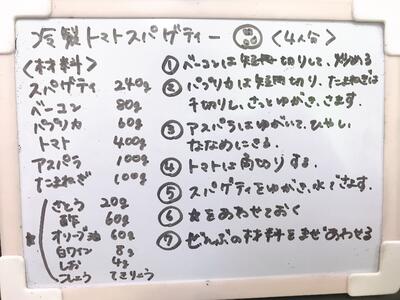 冷製トマトスパゲティー 〈4人分〉
〈材料〉
スパゲティ 240g
ベーコン 80g
パプリカ 60g
トマト 400g
アスパラ 100g
たまねぎ 100g
★
さとう 20g
酢 60g
オリーブ油 60g
白ワイン 8g
しお 4g
こしょう てきりょう
① ベーコンは短冊切りして、炒める
② パプリカは短冊切り、たまねぎは
千切りし、さっとゆがき、さます。
③ アスパラはゆがいて、ひやし、
ななめにきる。
④ トマトは角切りする。
⑤ スパゲティをゆがき、水でさます。
⑥ ★をあわせておく
⑦ ぜんぶの材料をまぜあわせる